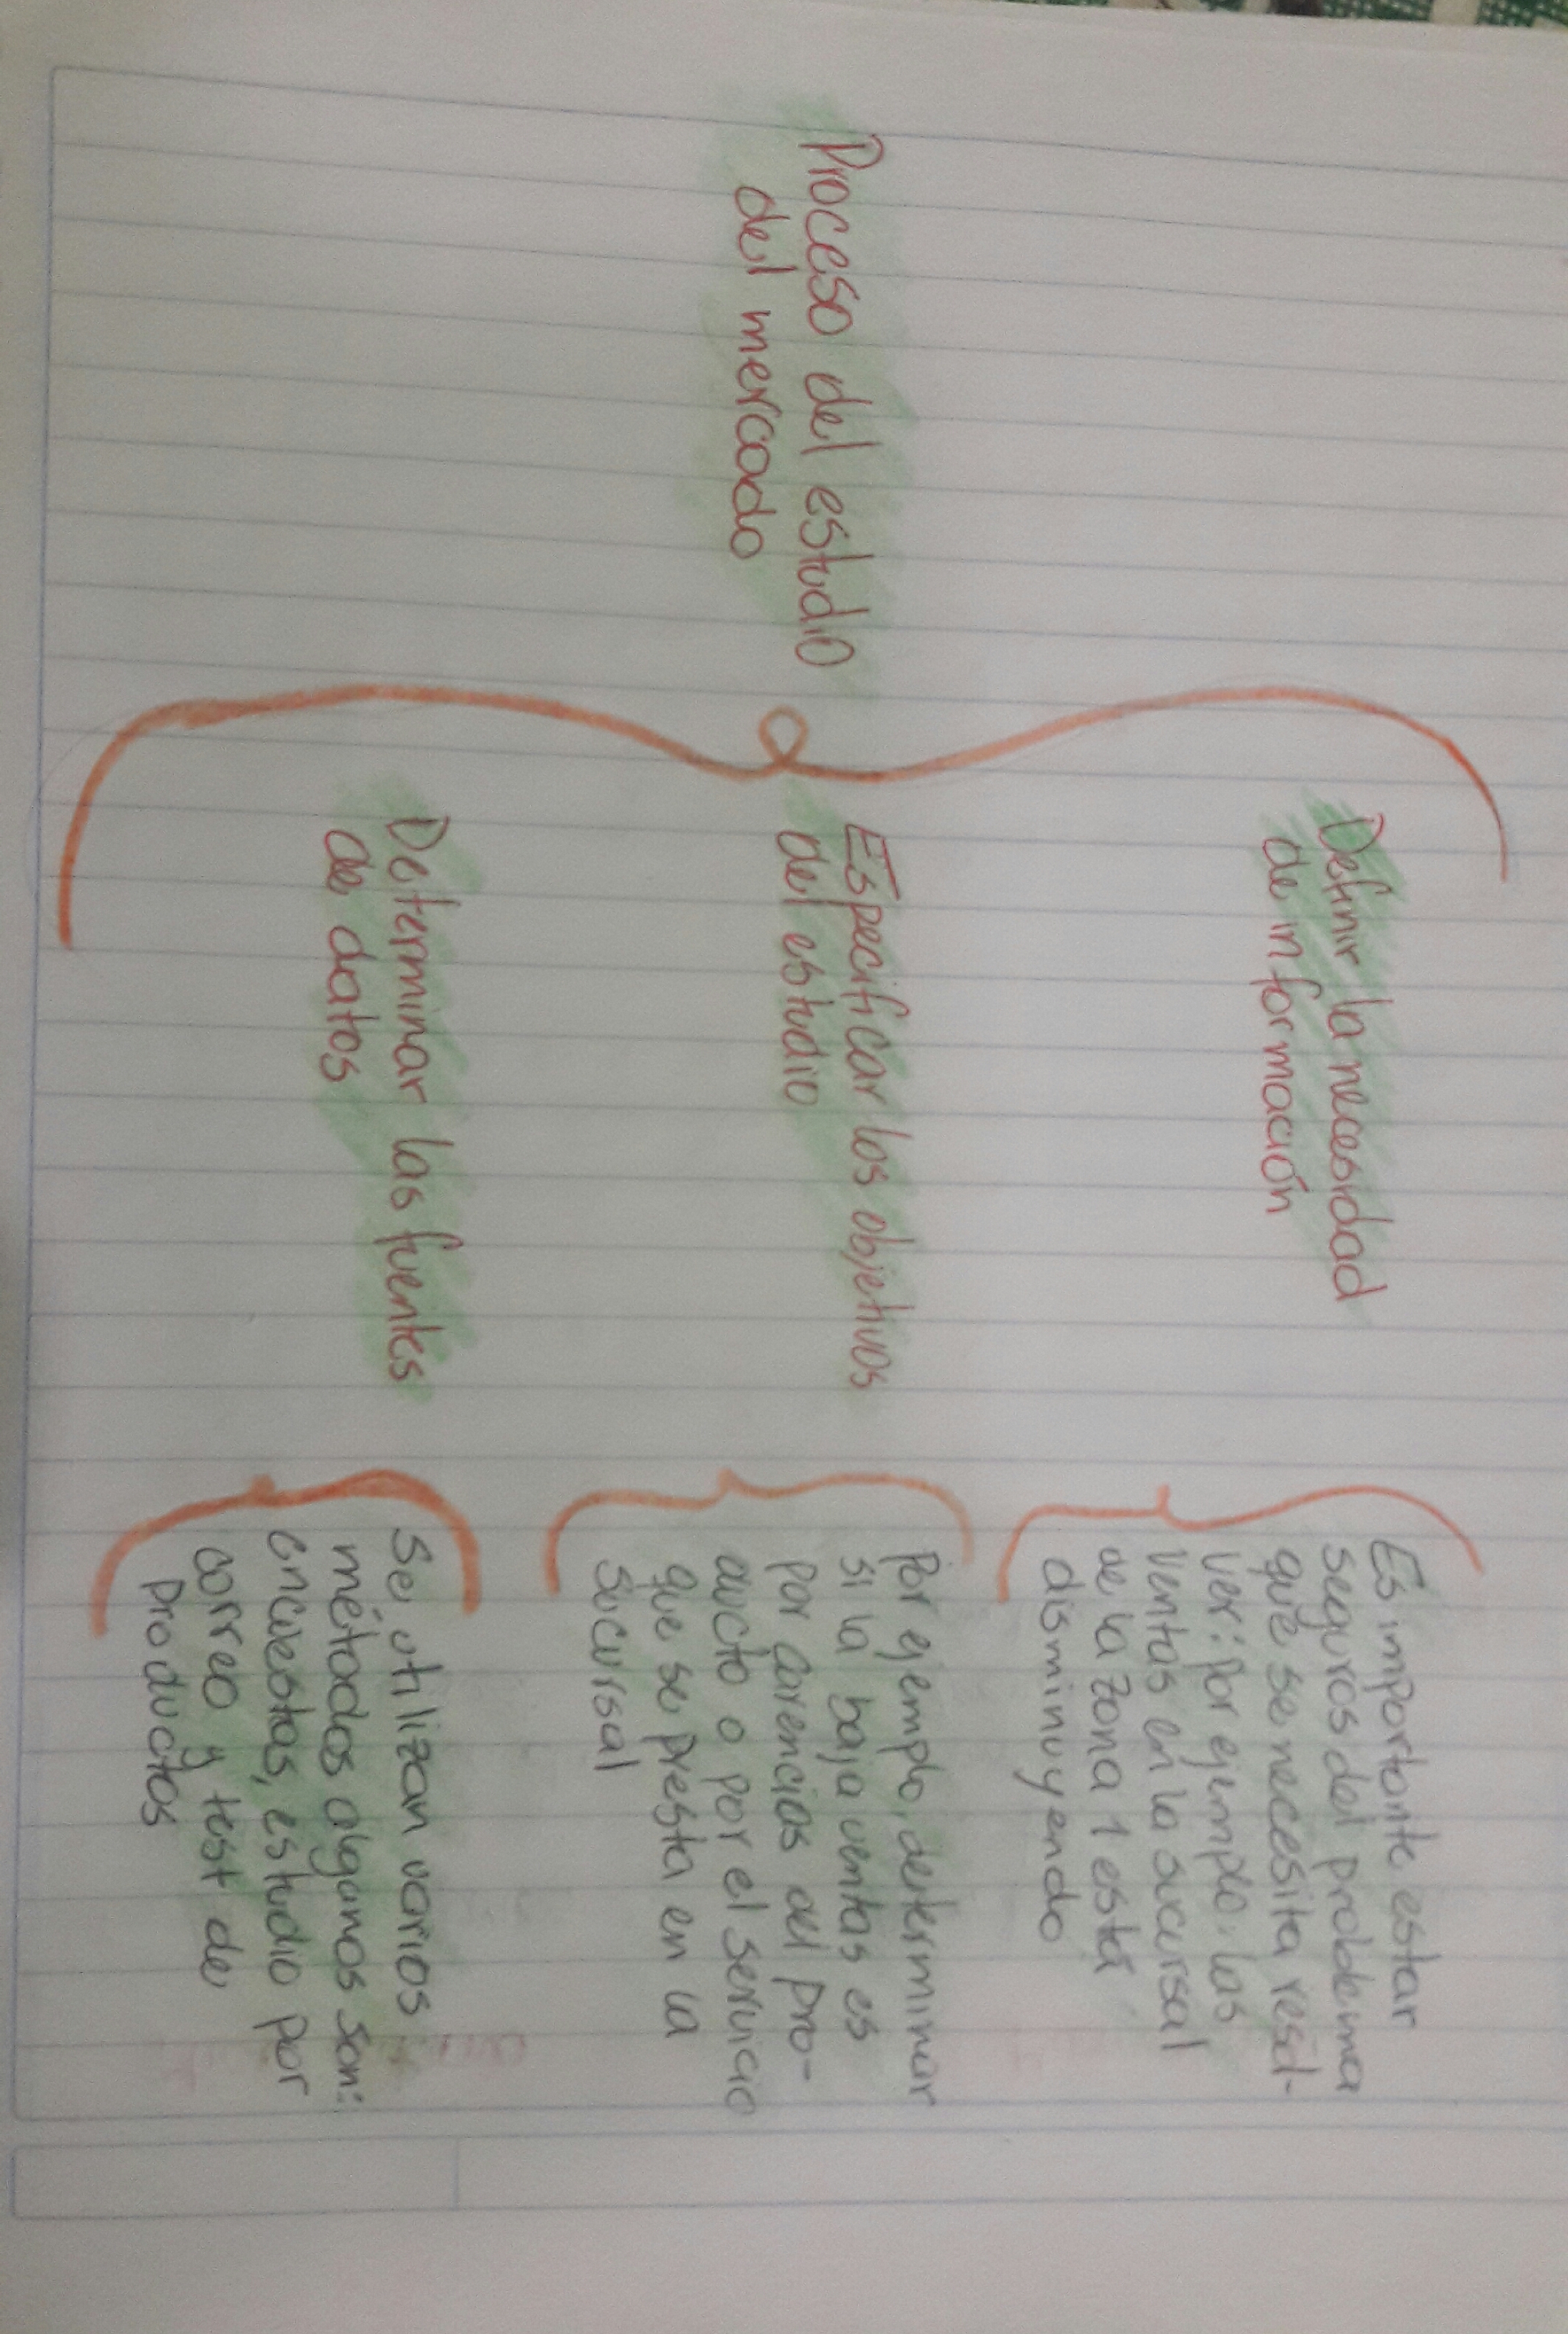 Proceso del estudio
del mercado
Definir la necesidad
de información
Es importante estar
seguros del problema
que se necesita resol-
ver: Por ejemplo, las
ventas en la sucursal
de la zona 1 está
disminuyendo
Especificar los objetivos
del estudio
Por ejemplo, determinar
si la baja ventas es
por carencias del pro-
ducto o por el servicio
que se presta en la
sucursal
Determinar las fuentes
de datos
Se utilizan varios
métodos algunos son:
encuestas, estudio por
correo y test de
productos